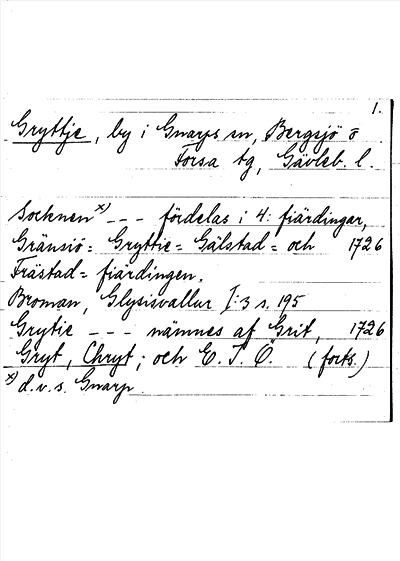 1.
Gryttje, by i Gnarps sn, Bergsjö o
Forsa tg, Gävleb. l.
Socknen x) --- fördelas i 4: fiärdingar,
Gränsiö= Gryttie= Gälstad= och 1726
Frästad= fiärdingen.
Broman, Glysisvallur I:3 s. 195
Grytie --- nämnes af Grit, 1726
Gryt, Chryt; och E. T. Ö. (forts.)
x) d.v.s. Gnarp